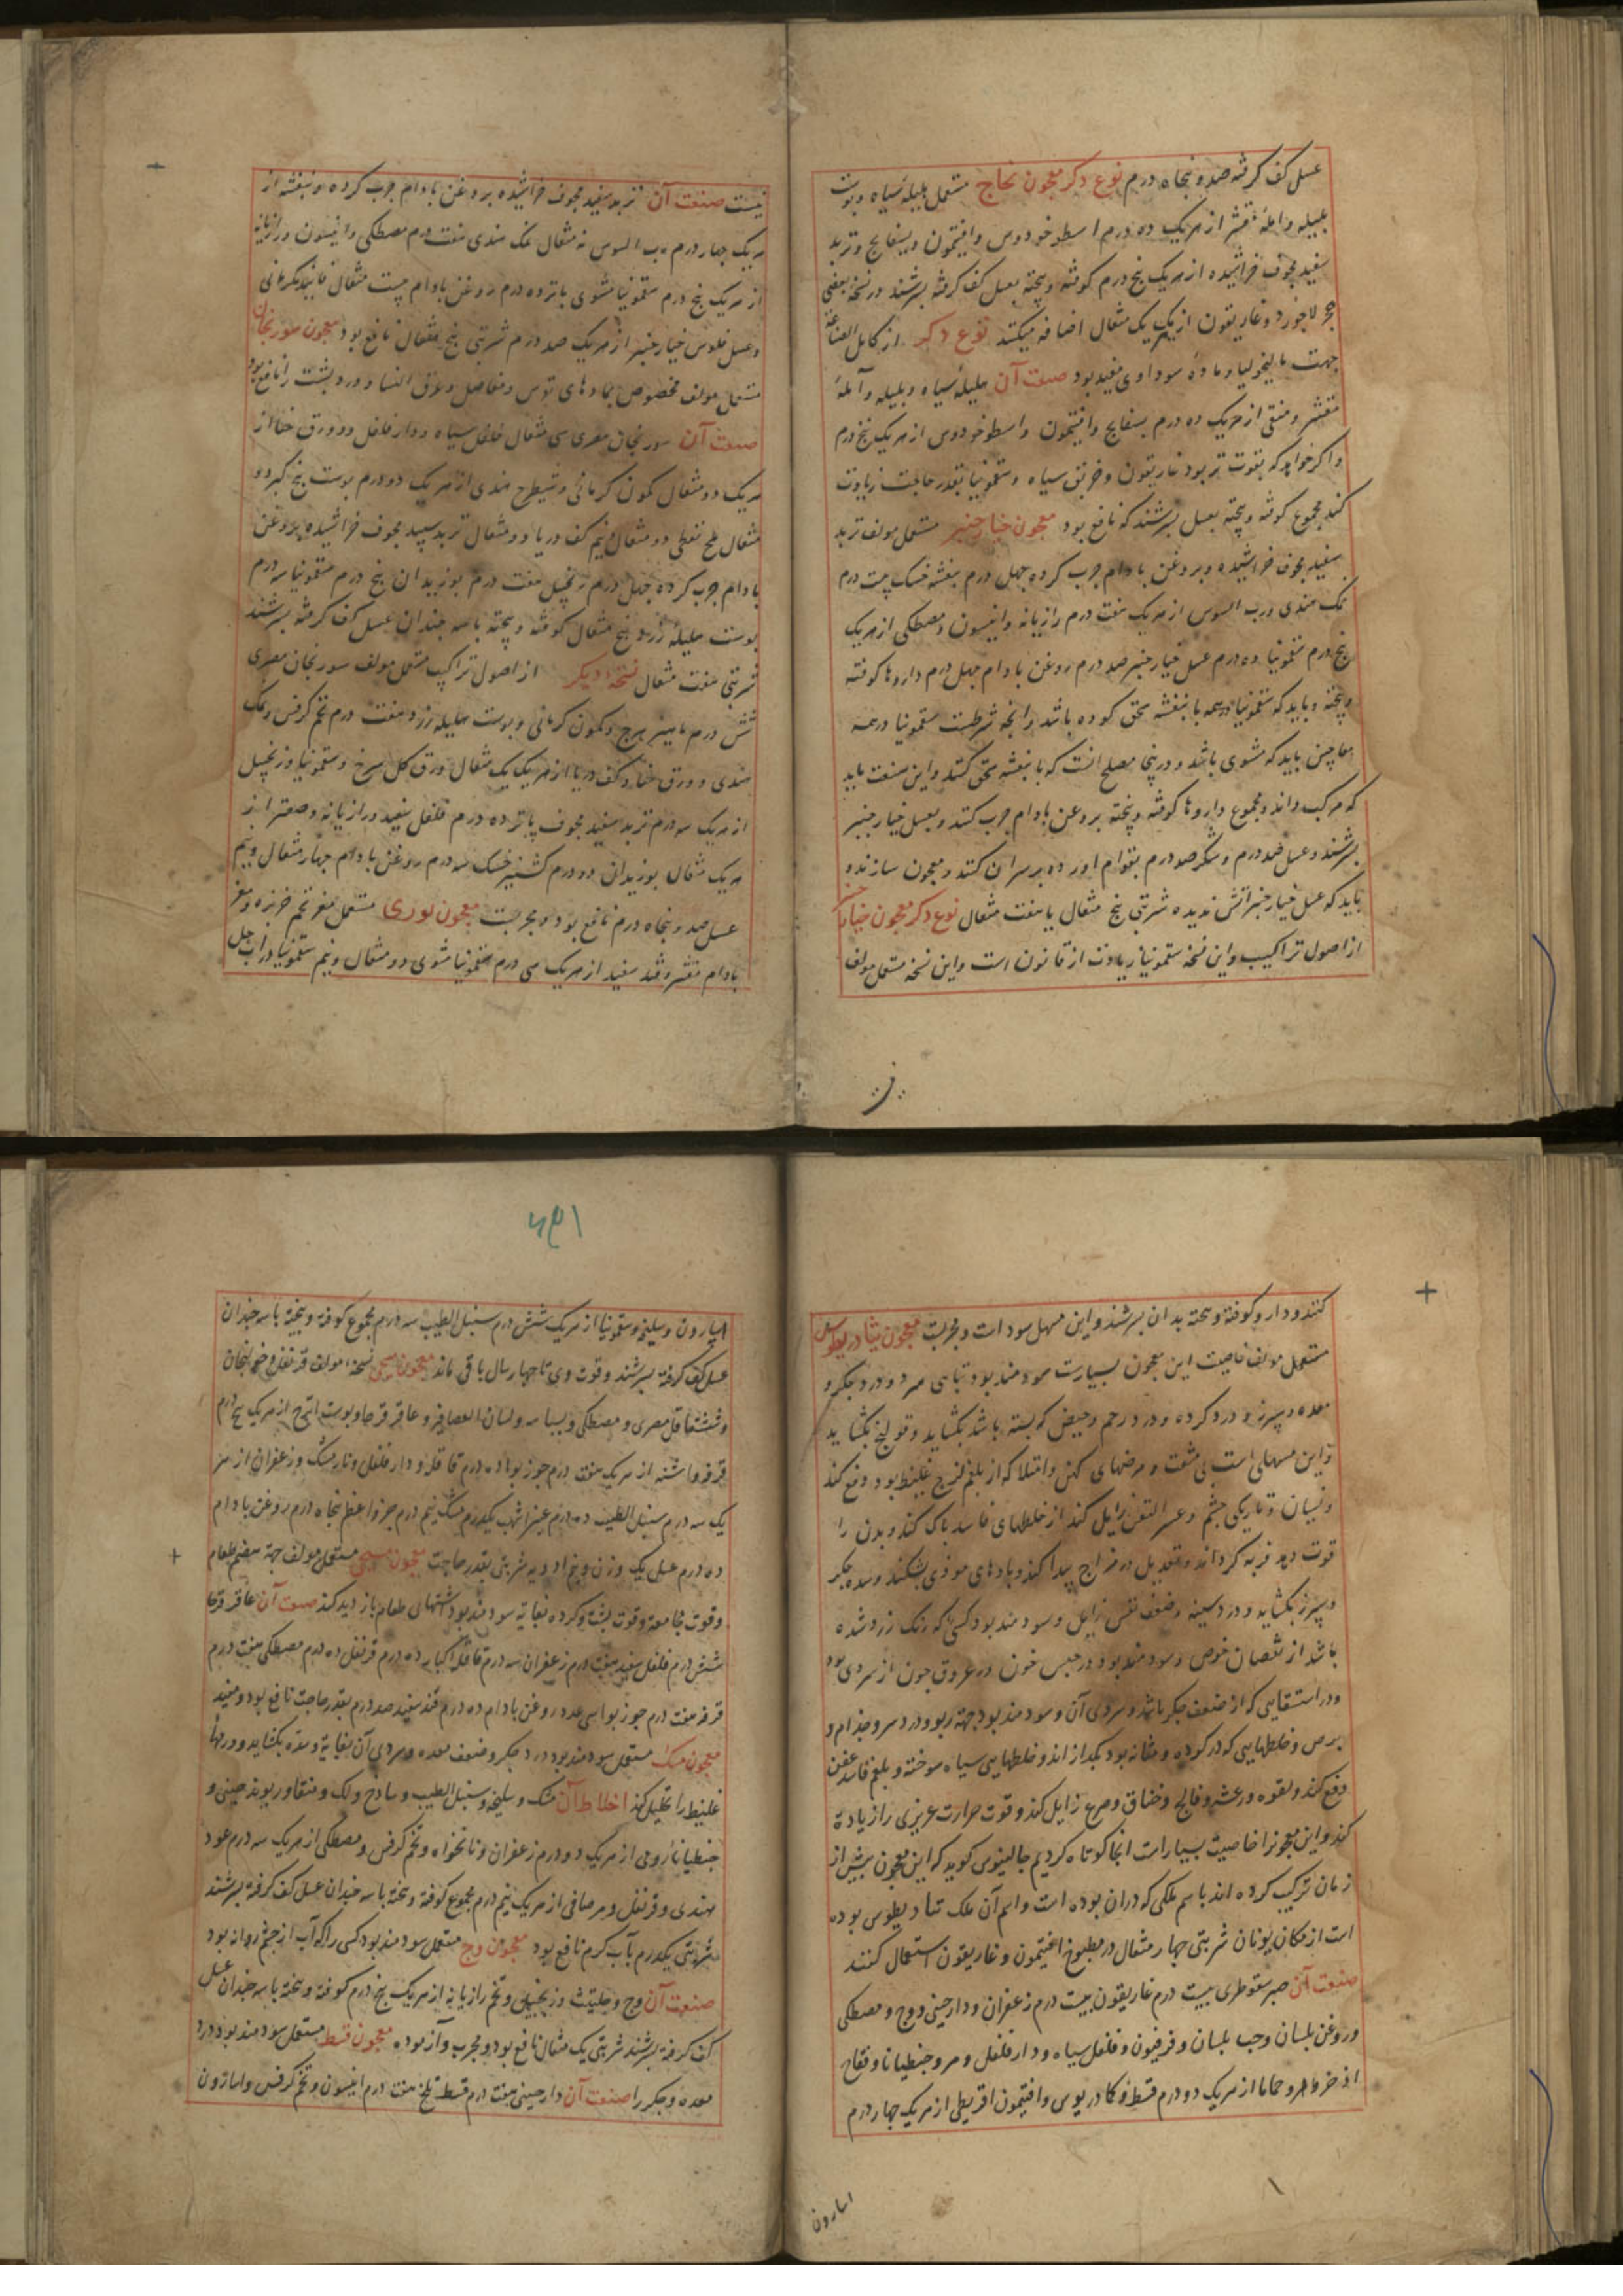 عسل کف کرفته صد و پنجاه درم نوع دکر معجون نجاح مستعمل هلیلهٔ سیاه و پوست
بلیله و املهٔ مقشر از هریک ده درم اسطوخودوس و افتیمون و بسفایج و تربد
سفید مجوف خراشیده از هریک پنج درم کوفته و پخته بعسل کف کرفته بسرشند و در نسخهٔ بعضی
حجر لاجورد و غاریقون از هریک یک مثقال اضافه میکنند نوع دکر از کامل الصناعة
جهت مالیخولیا و مادهٔ سوداوی مفید بود صنعت آن هلیلهٔ سیاه و بلیله و آملهٔ
مقشر و منقی از هریک ده درم بسفایج و افتیمون و اسطوخودوس از هریک پنج درم
و اکر خواهد که بقوت تر بود غاریقون و خربق سیاه و سقمونیا بقدر حاجت زیادت
کند مجموع کوفته و پخته بعسل بسرشند که نافع بود معجون خیارچنبر مستعمل مولف تربد
سفید مجوف خراشیده و بروغن بادام چرب کرده چهل درم بنفشه خشک بیست درم
نمک هندی و رب السوس از هریک هفت درم رازیانه و انیسون و مصطکی از هریک
پنج درم سقمونیا ده درم عسل خیارچنبر صد درم روغن بادام چهل درم داروها کوفته
و پخته و باید که سقمونیا در همه با بنفشه سحق کرده باشد و انچه شرطست سقمونیا در همه
معاجین باید که مشوی باشد و در پنجا مصلح انست که با بنفشه سحق کنند و این صنعت باید
که مرکب داند و مجموع داروها کوفته و پخته بروغن بادام چرب کنند و بعسل خیارچنبر
بسرشند و عسل صد درم و شکر صد درم بقوام اورده بر سر ان کنند و معجون سازند و
باید که عسل خیارچنبر اتش ندیده شربتی پنج مثقال یا هفت مثقال نوع دکر معجون خیارچنبر
از اصول تراکیب و این نسخه سقمونیا زیادت از قانون است و این نسخه مستعمل مولف
نیست صنعت آن تربد سفید مجوف خراشیده بروغن بادام چرب کرده و بنفشه از
هریک چهار درم رب السوس نه مثقال نمک هندی هفت درم مصطکی و انیسون و رازیانه
از هریک پنج درم سقمونیا مشوی پانزده درم روغن بادام بیست مثقال فانید کرمانی
و عسل فلوس خیارچنبر از هریک صد درم شربتی پنج مثقال نافع بود معجون سورنجان
مستعمل مولف مخصوص بمادهای نقرس و مفاصل و عرق النسا و درد پشت را نافع بود
صنعت آن سورنجان مصری سی مثقال فلفل سیاه و دار فلفل و ورق حنا از
هریک دو مثقال کمون کرمانی و شیطرج هندی از هریک دو درم پوست بیخ کبر دو
مثقال ملح نفطی دو مثقال و نیم کف دریا دو مثقال تربد سپید مجوف خراشیده بروغن
بادام چرب کرده چهل درم زنجبیل هفت درم بوزیدان پنج درم سقمونیا سه درم
پوست هلیلهٔ زرد پنج مثقال کوفته و پخته با سه چندان عسل کف کرفته بسرشند
شربتی هفت مثقال نسخهٔ دیکر از اصول تراکیب مستعمل مولف سورنجان مصری
شش درم ماهیزهرج و کمون کرمانی و پوست هلیله زرد هفت درم تخم کرفس و نمک
هندی و ورق حنا و کف دریا از هریک یک مثقال ورق کل سرخ و سقمونیا و زنجبیل
از هریک سه درم تربد سفید مجوف پانزده درم فلفل سفید و رازیانه و صعتر از
هریک مثقال بوزیدان دو درم کشنیز خشک سه درم روغن بادام چهار مثقال و نیم
عسل صد و پنجاه درم نافع بود و مجربست معجون لوزی مستعمل مغز تخم خربزه و مغز
بادام مقشر و قند سفید از هریک سی درم سقمونیا مشوی دو مثقال و نیم سقمونیا در اب حل
۱۹۶
کنند و دارو کوفته و پخته بدان بسرشند و این مسهل سودا ست و مجربست معجون ثیادریطوس
مستعمل مولف خاصیت این معجون بسیارست سودمند بود تباهی و درد جکر و
معده و سپرز و درد کرده و درد رحم و حیض که بسته باشد بکشاید و قولنج بکشاید
و این مسهلی است بی مشقت و مرضهای کهن و امتلا که از بلغم لزج غلیظ بود دفع کند
و نسیان و تاریکی چشم و عسر النفس زایل کند از خلطهای فاسد پاک کند و بدن را
قوت دهد فربه کرداند و تعدیل در مزاج پیدا کند و بادهای موذی بشکند و سده جکر
و سپرز بکشاید و درد سینه و ضعف نفس زایل و سودمند بود کسی که رنک زرد شده
باشد از نقصان خوض و سودمند بود در حبس خون در عروق چون از سردی بود
و در استسقایی که از ضعف جکر باشد و سردی آن و سودمند بود جهة ربو و درد سر و جذام و
برص و خلطهایی که در کرده و مثانه بود بکدازاند و خلطهایی سیاه سوخته و بلغم فاسد عفن
دفع کند و لقوه و رعشه و فالج و خناق و صرع زایل کند و قوت حرارت غریزی را زیادة
کند و این معجون را خاصیت بسیارات اینجا کوتاه کردیم جالینوس کوید که این معجون پیش از
زمان ترکیب کرده اند باسم ملکی که دران بوده است و اسم آن ملک ثیادریطوس بوده
است از ملکان یونان شربتی چهار مثقال در مطبوخ افتیمون و غاریقون استعمال کنند
صنعت آن صبر سقوطری بیست درم غاریقون بیست درم زعفران و دارچینی و وج و مصطکی
و روغن بلسان و حب بلسان و فرفیون و فلفل سیاه و دار فلفل و مر و جنطیانا و فقاح
اذخر و حماما از هریک دو درم قسط و کمادریوس و افتیمون اقریطی از هریک چهار درم
اسارون
اسارون و سلیخه و سقمونیا از هریک شش درم سنبل الطیب سه درم مجموع کوفته و پخته با سه چندان
عسل کف کرفته بسرشند و قوت وی تا چهار سال باقی ماند معجون نسخه مولف قرنفل و خولنجان
و شقاقل مصری و مصطکی و بسباسه و لسان العصافیر و عاقرقرحا و پوست اترج از هریک پنج درم
قرفه و اشنه از هریک هفت درم جوز بوا ده درم قاقله و دار فلفل و نارمشک و زعفران از هر
یک سه درم سنبل الطیب ده درم عنبر اشهب یکدرم مشک نیم درم جزو اعظم پنجاه درم روغن بادام
ده درم عسل یک وزن و نیم ادویه شربتی بقدر حاجت معجون مسیحی مستعمل مولف جهة هضم طعام
و قوت مجامعة و قوت پشت و کرده بغایة سودمند بود اشتهای طعام بازدید کند صنعت آن عاقرقرحا
شش درم فلفل سفید هفت درم زعفران سه درم قاقلهٔ کبار ده درم قرنفل ده درم مصطکی هفت درم
قرفه هفت درم جوز بوا سی عدد روغن بادام ده درم قند سفید صد درم بقدر حاجت نافع بود و مفید
معجون مسک مستعمل سودمند بود درد جکر و ضعف معده و سردی آن بغایة و سده بکشاید و ورمها
غلیظ را تحلیل کند اخلاط آن مشک و سلیخه و سنبل الطیب و ساذج و لک و منقا و ریوند چینی و
جنطیانا رومی از هریک دو درم زعفران و نانخواه و تخم کرفس و مصطکی از هریک سه درم عود
هندی و قرنفل و مر صافی از هریک نیم درم مجموع کوفته و پخته با سه چندان عسل کف کرفته بسرشند
شربتی یکدرم بآب کرم نافع بود معجون وج مستعمل سودمند بود کسی را که آب از چشم روانه بود
صنعت آن وج و حلتیت و زنجبیل و تخم رازیانه از هریک پنج درم کوفته و پخته با سه چندان عسل
کف کرفته بسرشند شربتی یک مثقال نافع بود و مجرب و آزموده معجون قسط مستعمل سودمند بود درد
معده و جکر را صنعت آن دارچینی هفت درم قسط تلخ هفت درم انیسون و تخم کرفس و اسارون